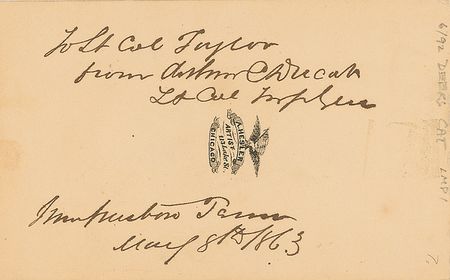 To Lt Col Taylor
from Arthur C Ducat
Lt Col Insp Gen
A. HESLER,
ARTIST
113 Lake St.
CHICAGO.
Murfreesboro Tenn
May 8th 1863
6/92 DEEKS CAT